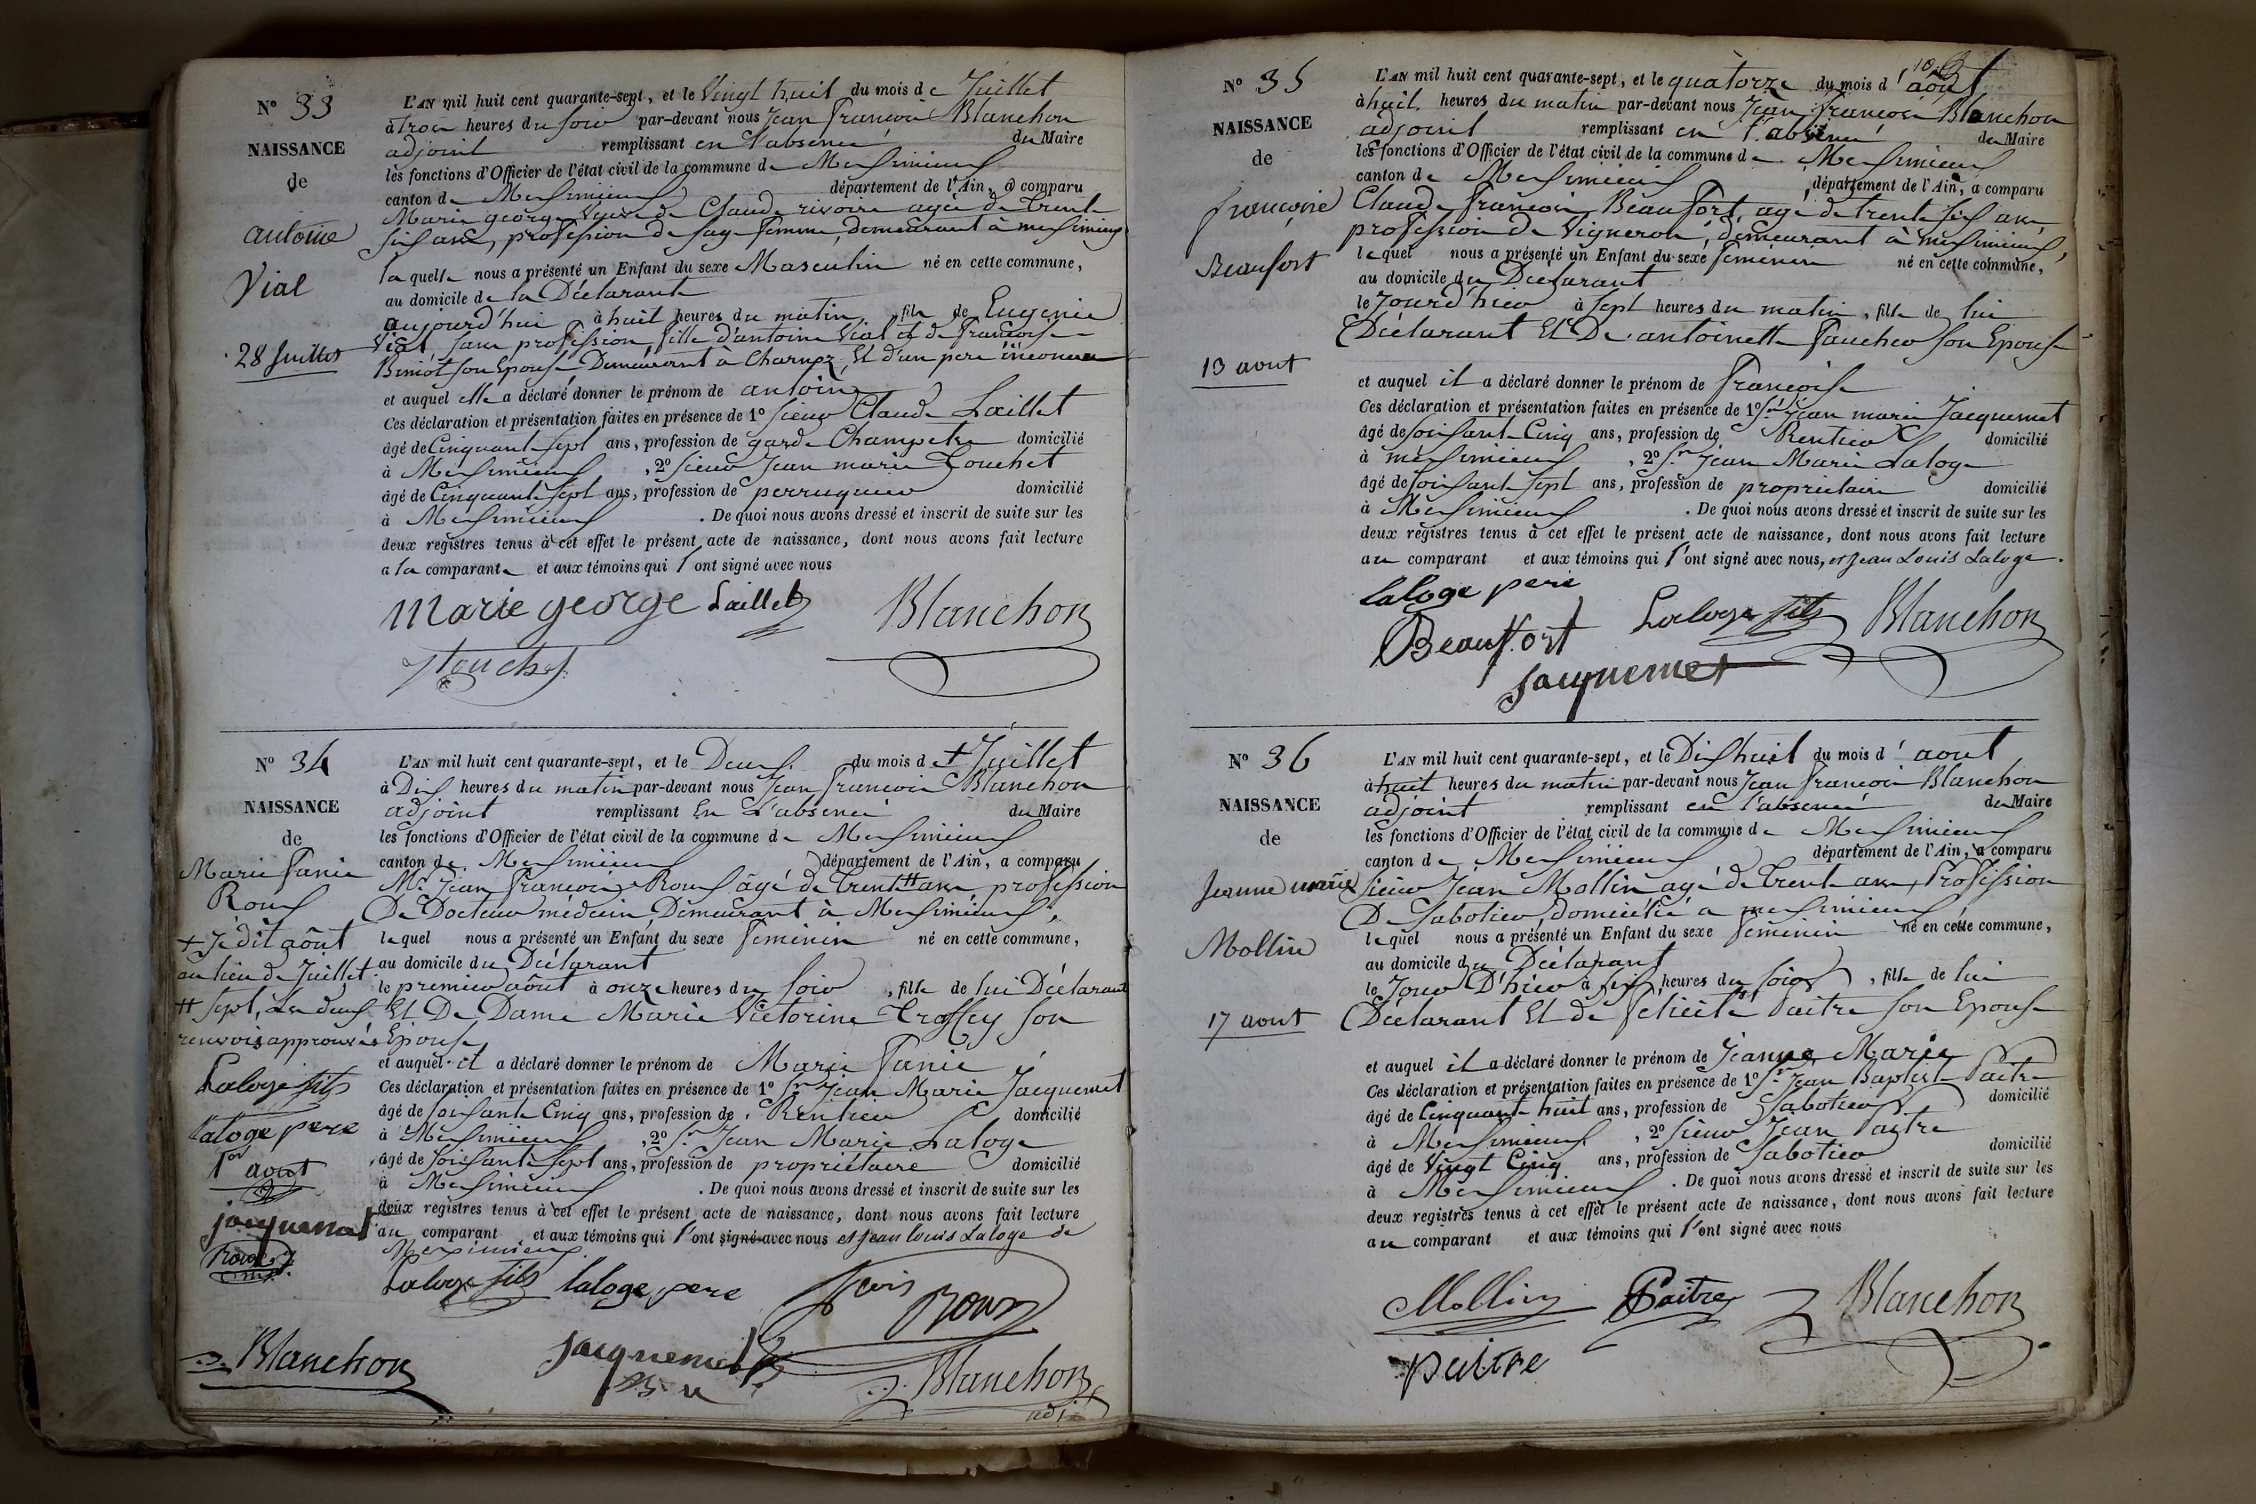 N° 33
NAISSANCE
de
antoine
Vial
28 Juillet
L'AN mil huit cent quarante-sept, et le Vingt huit du mois de Juillet
à trois heures du soir par-devant nous Jean François Blanchon
adjoint remplissant en l'absence du Maire
les fonctions d'Officier de l'état civil de la commune de Meximieux
canton de Meximieux département de l'Ain, a comparu
Marie george Veuve de Claude rivoire agée de trente
six ans, profession de sage femme, demeurant à meximieux
laquelle nous a présenté un Enfant du sexe Masculin né en cette commune,
au domicile de la Déclarante
aujourd'hui à huit heures du matin, fils de Eugenie
Vial sans profession, fille d'antoine Vial et de Françoise
son Epouse Demeurant à Charnoz, Et d'un pere inconnu
et auquel elle a déclaré donner le prénom de antoine
Ces déclaration et présentation faites en présence de 1° sieur Claude Laillet
âgé de Cinquante sept ans, profession de garde Champetre domicilié
à Meximieux, 2° sieur Jean marie Touchet
âgé de Cinquante sept ans, profession de perruquier domicilié
à Meximieux. De quoi nous avons dressé et inscrit de suite sur les
deux registres tenus à cet effet le présent acte de naissance, dont nous avons fait lecture
a la comparante et aux témoins qui l'ont signé avec nous
Marie george Laillet Blanchon
Touchet
N° 34
NAISSANCE
de
Marie Fanie
Roux
+ Je dit aôut
au lieu de Juillet
# sept, Les deux
renvois approuvés
Laloge fils
laloge pere
1er aout
jacquemet
Roux
Blanchon
L'AN mil huit cent quarante-sept, et le Deux du mois de + Juillet
à Dix heures du matin par-devant nous Jean François Blanchon
adjoint remplissant En L'absence du Maire
les fonctions d'Officier de l'état civil de la commune de Meximieux
canton de Meximieux département de l'Ain, a comparu
Mr Jean François Roux âgé de trente # ans profession
De Docteur médecin, Demeurant à Meximieux,
lequel nous a présenté un Enfant du sexe Feminin né en cette commune,
au domicile du Déclarant
le premier aôut à onze heures du soir, fille de lui Déclarant
Et De Dame Marie Victorine son
Epouse
et auquel il a déclaré donner le prénom de Marie Fanie
Ces déclaration et présentation faites en présence de 1° Sr Jean Marie Jacquemet
âgé de soixante Cinq ans, profession de Rentier domicilié
à Meximieux, 2° Sr Jean Marie Laloge
âgé de soixante sept ans, profession de propriétaire domicilié
à Meximieux. De quoi nous avons dressé et inscrit de suite sur les
deux registres tenus à cet effet le présent acte de naissance, dont nous avons fait lecture
au comparant et aux témoins qui l'ont signé avec nous et jean louis Laloge de
Meximieux
Laloge fils laloge pere Roux
jacquemet
Blanchon
adj
N° 35
NAISSANCE
de
françoise
Beaufort
13 aout
L'AN mil huit cent quarante-sept, et le quatorze du mois d'août
à huit heures du matin par-devant nous Jean François Blanchon
adjoint remplissant en l'absence du Maire
les fonctions d'Officier de l'état civil de la commune de Meximieux
canton de Meximieux département de l'Ain, a comparu
Claude François Beaufort, agé de trente six ans
profession de Vigneron, demeurant à Meximieux,
lequel nous a présenté un Enfant du sexe feminin né en cette commune,
au domicile du Declarant
le Jourd'hier à sept heures du matin, fille de lui
Déclarant Et De antoinette Faucher son Epouse
et auquel il a déclaré donner le prénom de Françoise
Ces déclaration et présentation faites en présence de 1° Sr Jean marie Jacquemet
âgé de soixante Cinq ans, profession de Rentier domicilié
à meximieux, 2° Sr Jean Marie Laloge
âgé de soixante sept ans, profession de proprietaire domicilié
à Meximieux. De quoi nous avons dressé et inscrit de suite sur les
deux registres tenus à cet effet le présent acte de naissance, dont nous avons fait lecture
au comparant et aux témoins qui l'ont signé avec nous, et jean Louis Laloge.
laloge pere
Laloge fils Blanchon
Beauffort
jacquemet
N° 36
NAISSANCE
de
Jeanne marie
Mollin
17 aout
L'AN mil huit cent quarante-sept, et le Dix huit du mois d'aout
à huit heures du matin par-devant nous Jean François Blanchon
adjoint remplissant en l'absence du Maire
les fonctions d'Officier de l'état civil de la commune de Meximieux
canton de Meximieux département de l'Ain, a comparu
sieur Jean Mollin agé de trente ans, Profession
De Sabotier, domicilié a meximieux
lequel nous a présenté un Enfant du sexe feminin né en cette commune,
au domicile du Déclarant
le Jour D'hier à six heures du soir, fille de lui
Déclarant Et de felicité Paitre son Epouse
et auquel il a déclaré donner le prénom de Jeanne Marie
Ces déclaration et présentation faites en présence de 1° Sr Jean Baptiste Paitre
âgé de Cinquante huit ans, profession de Sabotier domicilié
à Meximieux, 2° sieur Jean Paitre
âgé de Vingt Cinq ans, profession de Sabotier domicilié
à Meximieux. De quoi nous avons dressé et inscrit de suite sur les
deux registres tenus à cet effet le présent acte de naissance, dont nous avons fait lecture
au comparant et aux témoins qui l'ont signé avec nous
Mollin Paitre Blanchon
paitre